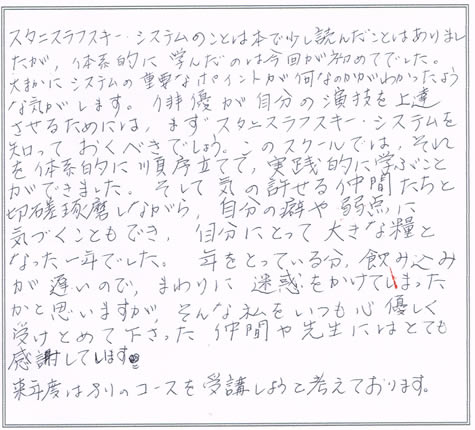 スタニスラフスキー・システムのことは本で少し読んだことはありまし
たが、体系的に学んだのは今回が初めてでした。
大まかにシステムの重要なポイントが何なのかがわかったよう
な気がします。俳優が自分の演技を上達
させるためには、まずスタニスラフスキー・システムを
知っておくべきでしょう。このスクールでは、それ
を体系的に順序立てて、実践的に学ぶこと
ができました。そして気の許せる仲間たちと
切磋琢磨しながら、自分の癖や弱点に
気づくこともでき、自分にとって大きな糧と
なった一年でした。年をとっている分、飲み込み
が遅いので、まわりに迷惑をかけてしまった
かと思いますが、そんな私をいつも心優しく
受けとめて下さった仲間や先生にはとても
感謝してします。
来年度は別のコースを受講しようと考えております。